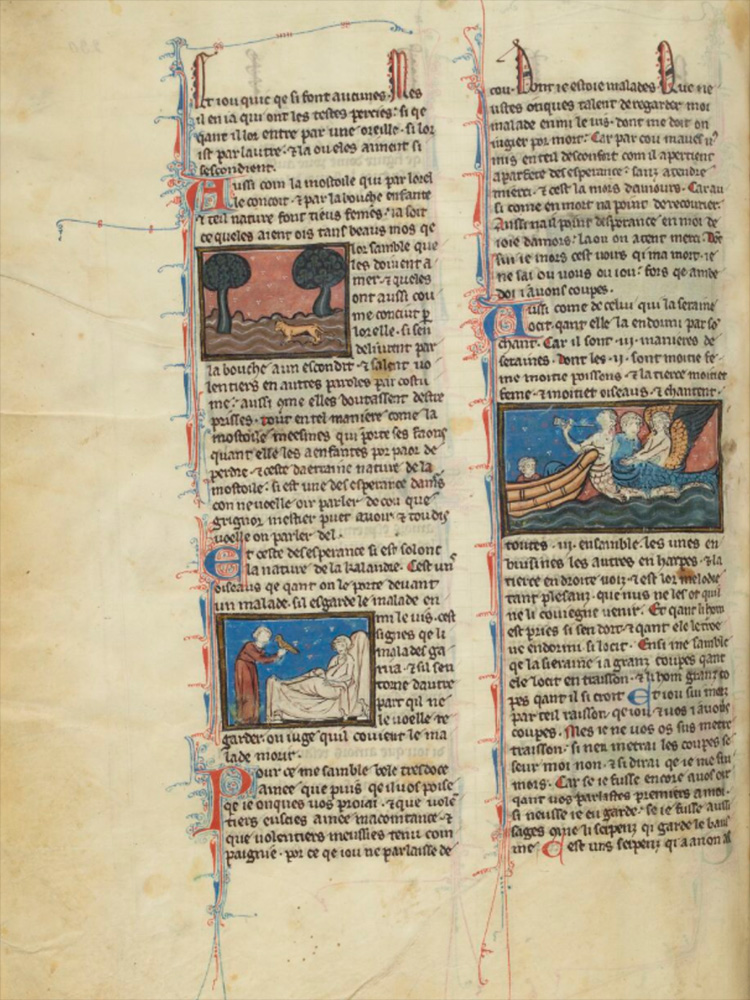 Et iou quic qe si font aucunes. Mes
il en ia qui ont les testes percies: si qe
qant il lor entre par une oreille. si lor
ist par lautre. ⁊ la ou eles aiment si
sescondient.
Aussi com la mostoile qui par lorel
le concoit. ⁊ par la bouche enfante
⁊ teil nature font
ce queles aient ois tans beaus mos qe
lor samble que
les doivent a
mer. ⁊ queles
ont aussi con
me conciut p
lorelle. si sen
deliurent par
la bouche a un escondit. ⁊ salent uo
lentiers en autres paroles par costu
me: aussi ome elles doutassent destre
prisses. tout en tel maniere come la
mostoile meesmes qui porte ses faons
quant elle les a enfantes por paor de
perdre. ⁊ ceste daerraine nature de la
mostoile: si est une des esperance dams
con ne uoelle oir parler de cou que
grignor mestier puet auoir. ⁊ toudis
uoelle on parler del.
Et ceste desesperance si est solonc
la nature de la kalandre. Cest un
oiseaus qe qant on le porte deuant
un malade. sil esgarde le malade en
mi le uis. cest
signes qe li
malades ga
rira. ⁊ sil sen
torne dautre
part qil ne
le uoelle re
garder. on iuge quil couient le ma
lade morir.
Pour ce me samble bele tresdoce
amee que puis qe il uos poise
qe ie onques uos proiai. ⁊ que uolen
tiers eusies amee macointance. ⁊
que volentiers meussies tenu com
paignie. por ce qe iou ne parlaisse de
cou. Dont ie estoie malades. Que ne
ustes onques talent de regarder moi
malade enmi le uis. dont me doit on
iugier por mort. Car par cou
mis en teil desconfort com il apertient
a parfete desesperance: sanz atendre
merci. ⁊ cest la mors damours. Car au
si come en mort na point de recourier.
Ausi nia il point desperance en moi de
ioie damors: la ou on atent merci. Dont
sui ie mors cest uoirs qui ma mort. ie
ne sai ou uous ou iou: fors qe ambe
doi i auons coupes.
Aussi come de celui qui la seraine
ocit. qant elle la endormi par so
chant. Car il sont .iii. manieres de
seraines. Dont les .ii. sont moitie fe
me moitie poissons. ⁊ la tierce moitiet
feme. ⁊ moitiet oiseaus. ⁊ chantent.
toutes .iii. ensamble. les unes en
buisines les autres en harpes. ⁊ la
tierce en droite uois. ⁊ est lor melodie
tant plesanz. que nus ne les ot qui
ne li couiegne uenir. Et qant li hom
est pries si sen dort. ⁊ qant ele le troe
ue endormi si locit. Ensi me samble
qe la sieraine i a granz coupes qant
ele locit en traison. ⁊ li hom granz co
pes qant il si croit. Et iou sui morz
par teil traisson. qe iou ⁊ uos i auons
coupes. Mes ie ne uos os sus metre
traisson. si nen metrai les coupes se
seur moi non. ⁊ si dirai qe ie me sui
mors. Car se ie fusse encore
qant uos parlastes premiers a moi.
si neusse ie eu garde. se ie fusse aussi
sages qme li serpenz qi garde le bau
me. C est uns serpenz qi a a non